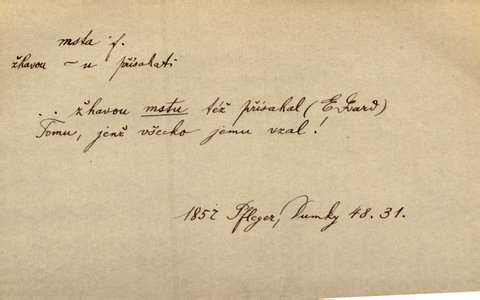 msta f.
žhavou – u přísahati
. . žhavou mstu též přísahal (Edvard)
Tomu, jenž všecko jemu vzal!
1857 Pfleger, Dumky 48. 31.